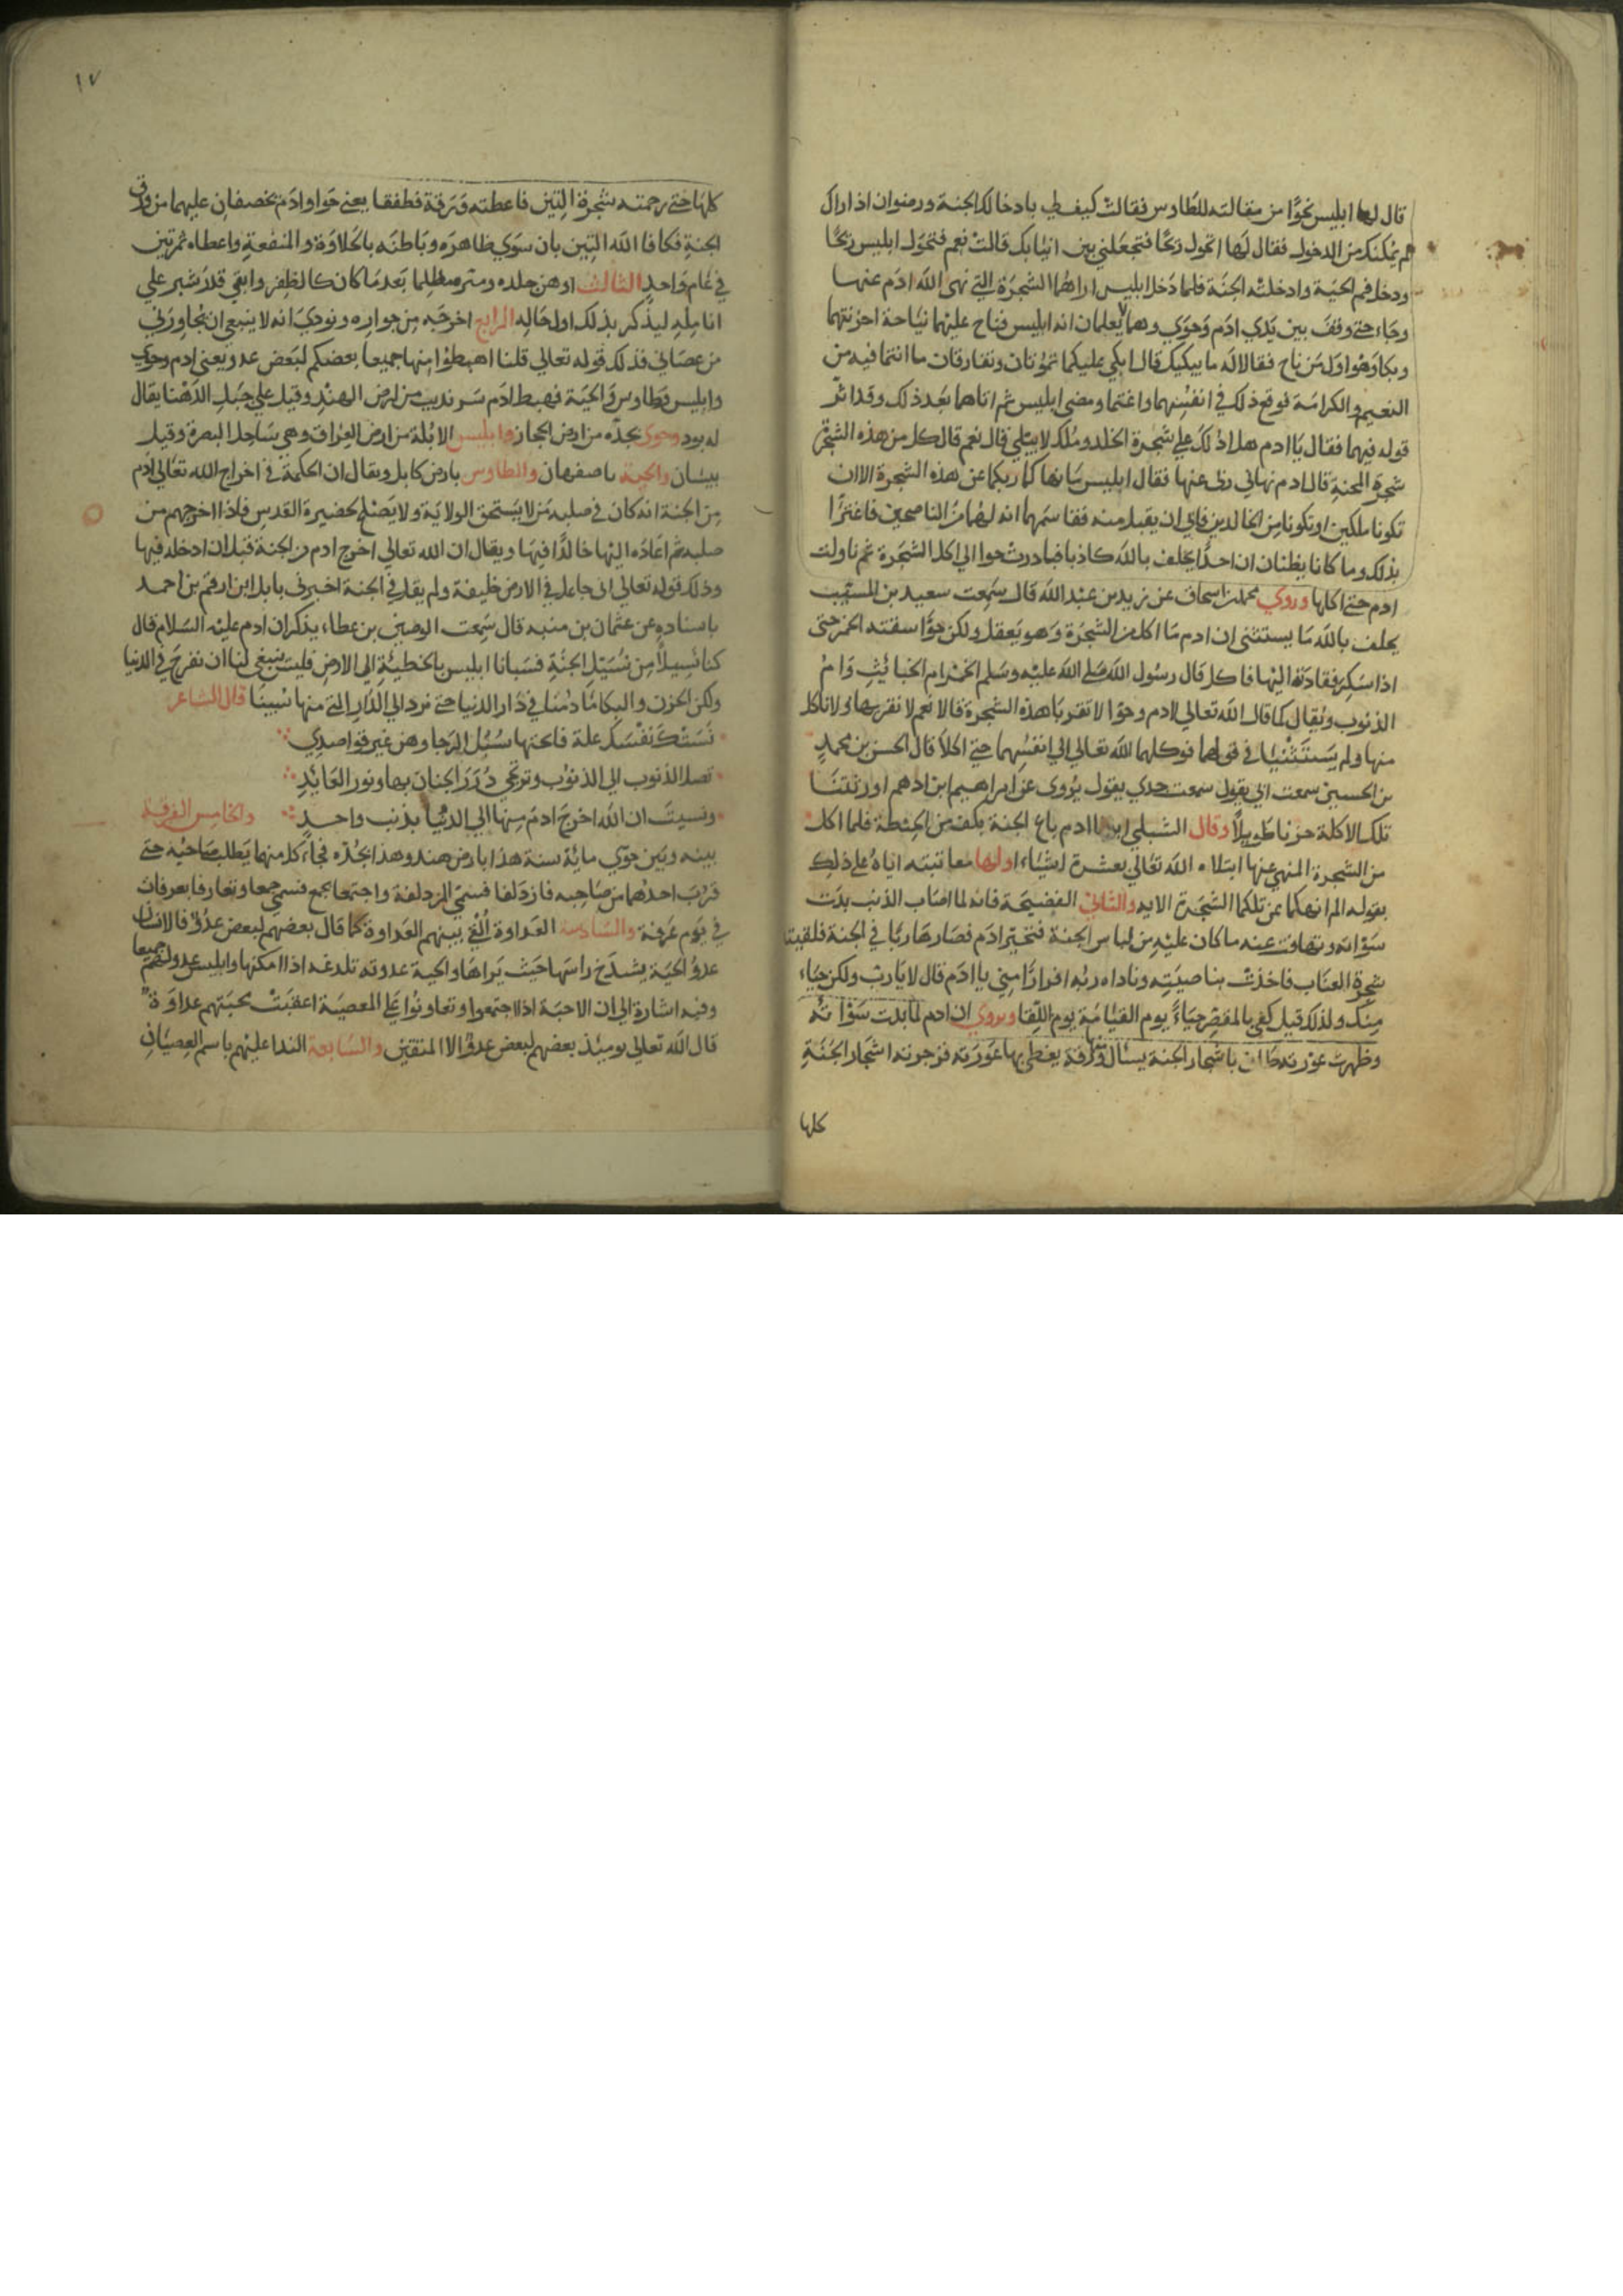 قال لها ابليس نحوًا من مقالته للطاوس فقالت كيف لي بادخالك الجنة ورضوان اذا راك
لم يمكنك من الدخول فقال لها اتحول ريحًا فتجعلني بين انيابك قالت نعم فتحول ابليس ريحًا
ودخل فم الحية وادخلته الجنة فلما دخل ابليس اراهما الشجرة التي نهى الله ادم عنها
وجاء حتى وقف بين يدي ادم وحوي وهما لا يعلمان انه ابليس فناح عليهما نياحة احزنتهما
وبكا وهو اول من ناح فقالا له ما يبكيك قال ابكي عليكما تموتان وتفارقان ما انتما فيه من
النعيم والكرامة فوقع ذلك في انفسهما واغتما ومضى ابليس ثم اتاهما بعد ذلك وقد اثر
قوله فيهما فقال يا ادم هل ادلك على شجرة الخلد وملك لا يبلي قال نعم قال كل من هذه الشجرة
شجرة المحنة قال ادم نهاني ربي عنها فقال ابليس ما نهاكما ربكما عن هذه الشجرة الا ان
تكونا ملكين او تكونا من الخالدين فابي ان يقبل منه فقاسمهما انه لهما من الناصحين فاغترا
بذلك وما كانا يظنان ان احدًا يحلف بالله كاذبا فبادرت حوا الي اكل الشجرة ثم ناولت
ادم حتى اكلها وروي محمد بن اسحاق عن يزيد بن عبد الله قال سمعت سعيد بن المسيب
يحلف بالله ما يستثنى ان ادم ما اكل من الشجرة وهو يعقل ولكن حوا سقته الخمر حتى
اذا سكر فقادته اليها فاكل قال رسول الله صلي الله عليه وسلم الخمر ام الخبائث وام
الذنوب ويقال كما قال الله تعالي لادم وحوا لا تقربا هذه الشجرة قالا نعم لا نقربها ولا ناكل
منها ولم يستثنيا في قولهما فوكلهما الله تعالي الي انفسهما حتي اكلا قال الحسن بن محمد
بن الحسين سمعت ابي يقول سمعت جدي يقول يروى عن ابراهيم ابن ادهم اورثتنا
تلك الاكلة حزنا طويلًا وقال الشبلي ادم باع الجنة بكف من الحنطة فلما اكل
من الشجرة المنهي عنها ابتلاه الله تعالي بعشرة اشياء اولها معاتبته اياه على ذلك
بقوله الم انهكما عن تلكما الشجرة الايه والثاني الفضيحة فانه لما اصاب الذنب بدت
سوءاته وتهافت عنه ما كان عليه من لباس الجنة فتحير ادم فصار هاربا في الجنة فلقيته
شجرة العناب فاخذت بناصيته وناداه ربه افرارًا مني يا ادم قال لا يارب ولكن حياء
منك ولذلك قيل كفي بالمقصر حياءً يوم القيامة يوم اللقا ويروي ان ادم لما بدت سوءاته
وظهرت عورته طاف باشجار الجنة يسال ورقة يغطي بها عورته فزجرته اشجار الجنة
كلها
١٧
كلها حتى رحمته شجرة التين فاعطته ورقة فطفقا يعني حوا وادم يخصفان عليهما من ورق
الجنة فكافا الله التين بان سوي ظاهره وباطنه بالحلاوة والمنفعة واعطاه ثمرتين
في عام واحد الثالث اوهن جلده ومظلما بعد ما كان كالظفر وابقي قدر شبر علي
انامله ليذكر بذلك اول حاله الرابع اخرجه من جواره ونودي انه لا ينبغي ان يجاورني
من عصاني فذلك قوله تعالي قلنا اهبطوا منها جميعا بعضكم لبعض عدو يعني ادم وحوي
وابليس وطاوس والحية فهبط ادم سرنديب من ارض الهند وقيل علي جبل الدهنا يقال
له بود وحوي بجده من ارض الحجاز وابليس الابلة من ارض العراق وهي ساحل البصرة وقيل
بيسان والحية باصفهان والطاوس بارض كابل ويقال ان الحكمة في اخراج الله تعالي ادم
من الجنة انه كان في صلبه من لا يستحق الولاية ولا يصلح لحضيرة القدس فاذا اخرجهم من
صلبه ثم اعاده اليها خالدًا فيها ويقال ان الله تعالي اخرج ادم من الجنة قبل ان ادخله فيها
وذلك قوله تعالي اني جاعل في الارض خليفة ولم يقل في الجنة اخبرني بابل ابن ارقم بن احمد
باسناده عن عثمان بن منبه قال سمعت الوضين بن عطاء يذكر ان ادم عليه السلام قال
كنا نسلًا من نسل الجنة فسبانا ابليس بالخطيئة الي الارض فليس ينبغي لنا ان نفرح في الدنيا
ولكن الحزن والبكا ما دمنا في دار الدنيا حتي نرد الي الدار التي منها سبينا قال الشاعر
نفسك علة فابحتها سبل الرجا وهن غير قواصدي
تصل الذنوب الي الذنوب وترتجي درر الجنان بها ونور العابد
ونسيت ان الله اخرج ادم منها الي الدنيا بذنب واحد والخامس الفرقة
بينه وبين حوي ماية سنة هذا بارض هند وهذا بجده فجاء كل منهما يطلب صاحبه حتي
قرب احدهما من صاحبه فازدلفا فسمي المزدلفة واجتمعا بجمع فسمي جمعا وتعارفا بعرفات
في يوم عرفة والسادسة العداوة القي بينهم العداوة كما قال بعضهم لبعض عدو فالانسان
عدو الحية يشدخ راسها حيث يراها والحية عدوته تلدغه اذا امكنها وابليس عدولهم جميعا
وفيه اشارة الي ان الاحبة اذا اجتمعوا وتعاونوا علي المعصية اعقبت محبتهم عداوة
قال الله تعالي يوميئذ بعضهم لبعض عدو الا المتقين والسابعة الندا عليهم باسم العصيان